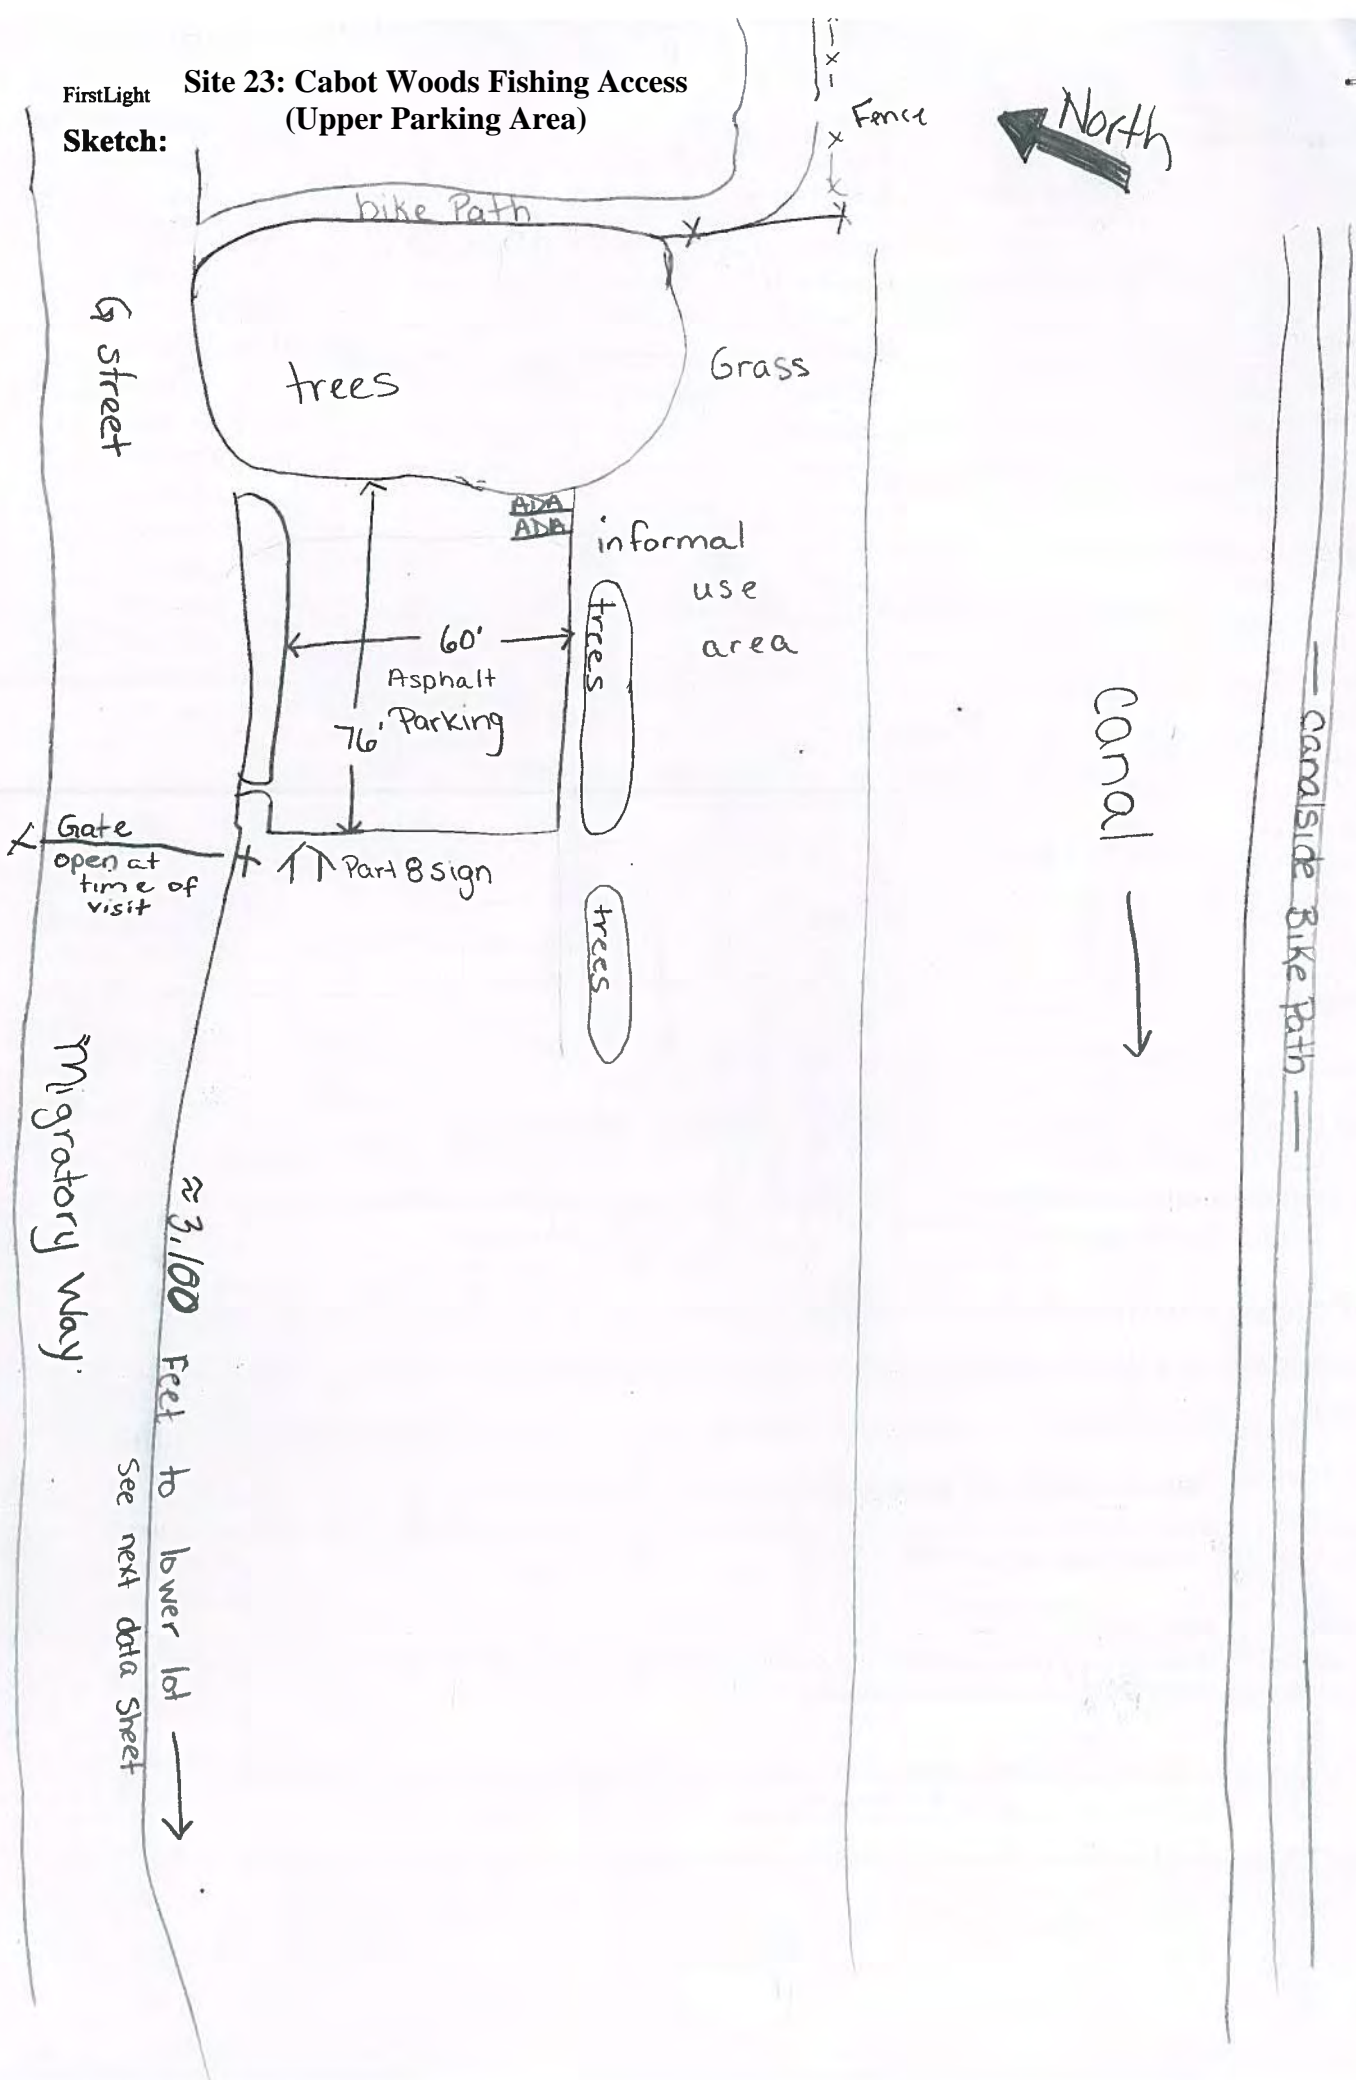 FirstLight
Site 23: Cabot Woods Fishing Access
(Upper Parking Area)
Sketch:
Fence
North
bike Path
G street
trees
Grass
ADA
ADA
informal
use
area
trees
60'
Asphalt
Parking
76'
Canal
Canalside Bike Path
Gate
open at
time of
visit
Part 8 sign
trees
Migratory Way
≈ 3,100 Feet to lower lot
See next data Sheet